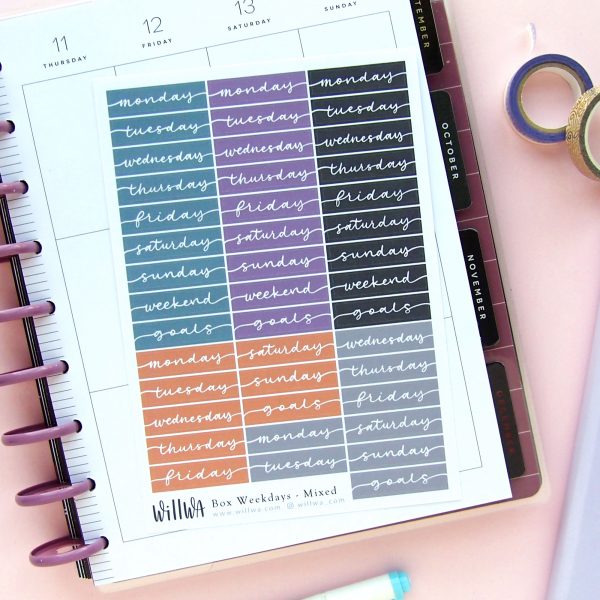 11
THURSDAY
12
FRIDAY
13
SATURDAY
SUNDAY
monday
tuesday
wednesday
thursday
friday
saturday
sunday
weekend
goals
monday
tuesday
wednesday
thursday
friday
monday
tuesday
wednesday
thursday
friday
saturday
sunday
weekend
goals
saturday
sunday
goals
monday
tuesday
monday
tuesday
wednesday
thursday
friday
saturday
sunday
weekend
goals
wednesday
thursday
friday
saturday
sunday
goals
willwa Box Weekdays - Mixed
www.willwa.com @willwa_com
OCTOBER
NOVEMBER
DECEMBER